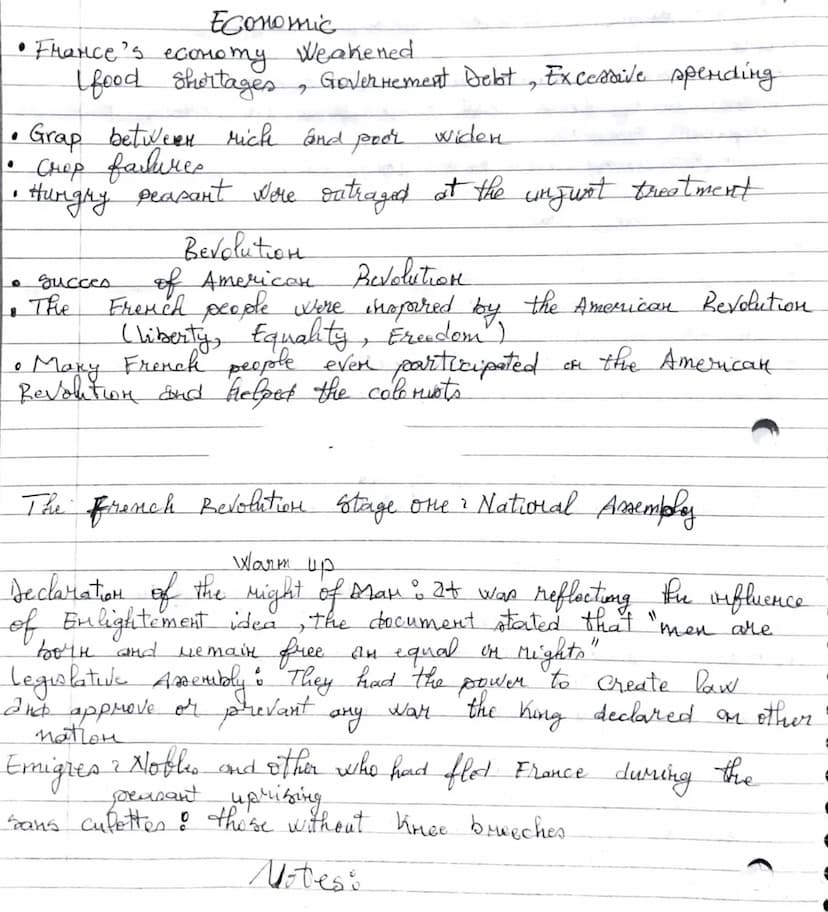 Economic
• France's economy Weakened
(food shortages, Governement Debt, Excessive spending
• Grap between rich and poor widen
• Crop failures
• Hungry peasant were outraged at the unjust treatment
Revolution
• succes of American Revolution
• The French people were inspired by the American Revolution
(liberty, Equality, Freedom)
• Many French people even participated in the American
Revolution and helped the colonists
The French Revolution Stage one: National Assembly
Warm up
Declaration of the right of Man: It was reflecting the influence
of Enlightement idea, the document stated that "men are
born and remain free an equal in rights"
Legislative Assembly: They had the power to create law
and approve or prevant any war the King declared on other
nation
Emigres: Nobles and other who had fled France during the
peasant uprising
sans culottes: those without Knee breeches
Notes: